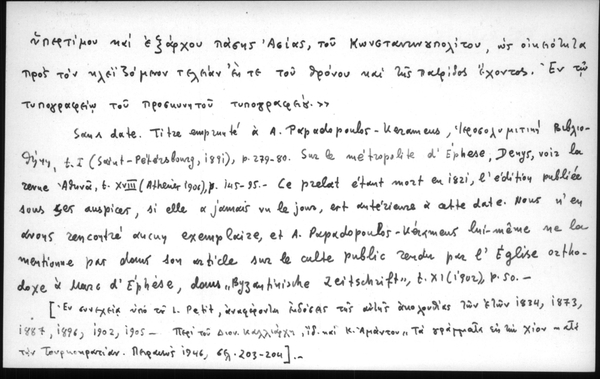 ὑπερτίμου καί ἐξάρχου πάσης Ἀσίας, τοῦ Κωνσταντινουπολίτου, ὡς οἰκειότητα
πρός τόν κλεϊζόμενον τελείαν ἔκ τε τοῦ θρόνου καί τῆς πατρίδος ἔχοντος. Ἐν τῷ
τυπογραφείῳ τοῦ προσκυνητοῦ τυπογραφείῳ. >>
Sans date. Titre emprunté à A. Papadopoulos-Kerameus, Ἱεροσολυμιτική Βιβλιο-
θήκη, t. I (Saint-Pétersbourg, 1891), p. 279-80. Sur le métropolite d'Éphèse, Denys, voir la
revue Ἀθηνᾶ, t. XVIII (Athènes 1906), p. 145-95.- Ce prélat étant mort en 1821, l'édition publiée
sous ses auspices, si elle a jamais vu le jour, est antérieure à cette date. Nous n'en
avons rencontré aucun exemplaire, et A. Papadopoulos-Kérameus lui-même ne la
mentionne pas dans son article sur le culte public rendu par l'Église ortho-
doxe à Marc d'Éphèse, dans „Byzantinische Zeitschrift", t. XI (1902), p. 50.-
[Ἐν συνεχείᾳ ὑπό τοῦ L. Petit, ἀναφέρονται ἐκδόσεις τῆς αὐτῆς ἀκολουθίας τῶν ἐτῶν 1834, 1873,
1887, 1896, 1902, 1905 - Περί τοῦ Διον. Καλλιάρχη, ἰδ. καί Κ. Ἀμάντου „Τά γράμματα εἰς τήν Χίον - κατά
τήν Τουρκοκρατίαν. Πειραιεύς 1946, σελ. 203-204].-